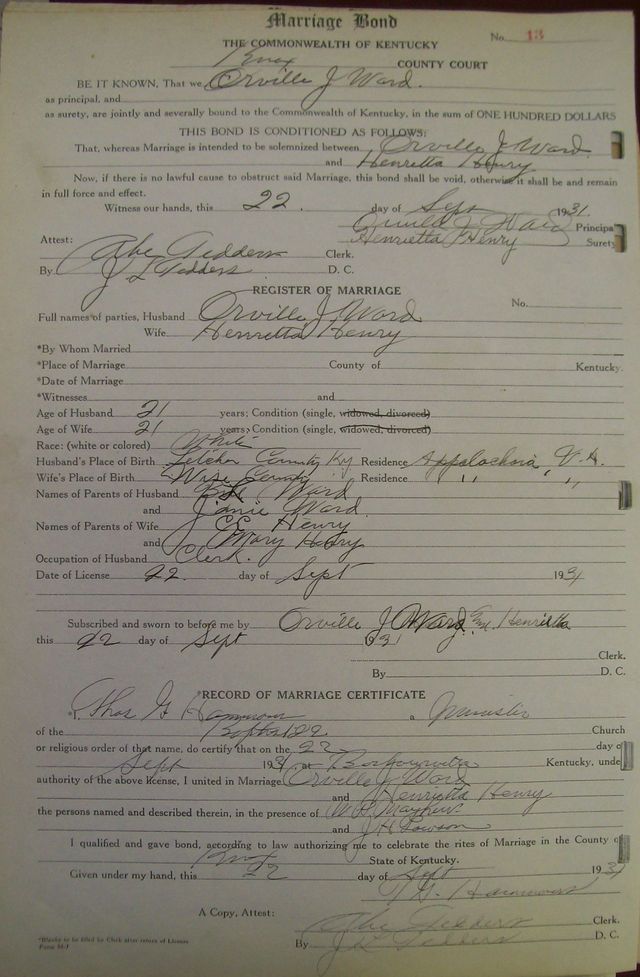 Marriage Bond
No. 13
THE COMMONWEALTH OF KENTUCKY
Knox COUNTY COURT
BE IT KNOWN, That we Orville J Ward.
as principal, and
as surety, are jointly and severally bound to the Commonwealth of Kentucky, in the sum of ONE HUNDRED DOLLARS
THIS BOND IS CONDITIONED AS FOLLOWS:
That, whereas Marriage is intended to be solemnized between Orville J Ward
and Henrietta Henry
Now, if there is no lawful cause to obstruct said Marriage, this bond shall be void, otherwise it shall be and remain
in full force and effect.
Witness our hands, this 22. day of Sept 1931
Orville J Ward Principal
Henrietta Henry Surety
Attest: Abe Gedders Clerk.
By J L Gedders D. C.
REGISTER OF MARRIAGE
No.
Full names of parties, Husband Orville J Ward
Wife Henrietta Henry
*By Whom Married
*Place of Marriage County of Kentucky.
*Date of Marriage
*Witnesses and
Age of Husband 21 years; Condition (single, widowed, divorced)
Age of Wife 21 years; Condition (single, widowed, divorced)
Race: (white or colored) White
Husband's Place of Birth Letcher County Ky Residence Appalachia, Va.
Wife's Place of Birth Wise County Residence " "
Names of Parents of Husband Ward
and Janie Ward.
Names of Parents of Wife CE Henry
and Mary Henry
Occupation of Husband Clerk.
Date of License 22. day of Sept 1931
Subscribed and sworn to before me by Orville J Ward, Henrietta
this 22 day of Sept 1931
Clerk.
By D. C.
RECORD OF MARRIAGE CERTIFICATE
*I, Thos G Hammons a Minister
of the Baptist Church
or religious order of that name, do certify that on the 22 day of
Sept 1931 at Barbourville Kentucky, under
authority of the above license, I united in Marriage Orville J Ward
and Henrietta Henry
the persons named and described therein, in the presence of
and J H Lawson
I qualified and gave bond, according to law authorizing me to celebrate the rites of Marriage in the County of
Knox State of Kentucky.
Given under my hand, this 22 day of Sept 1931
T G Hammons
A Copy, Attest: Abe Gedders Clerk.
By J L Gedders D. C.
*Blanks to be filled by Clerk after return of License
Form M-1